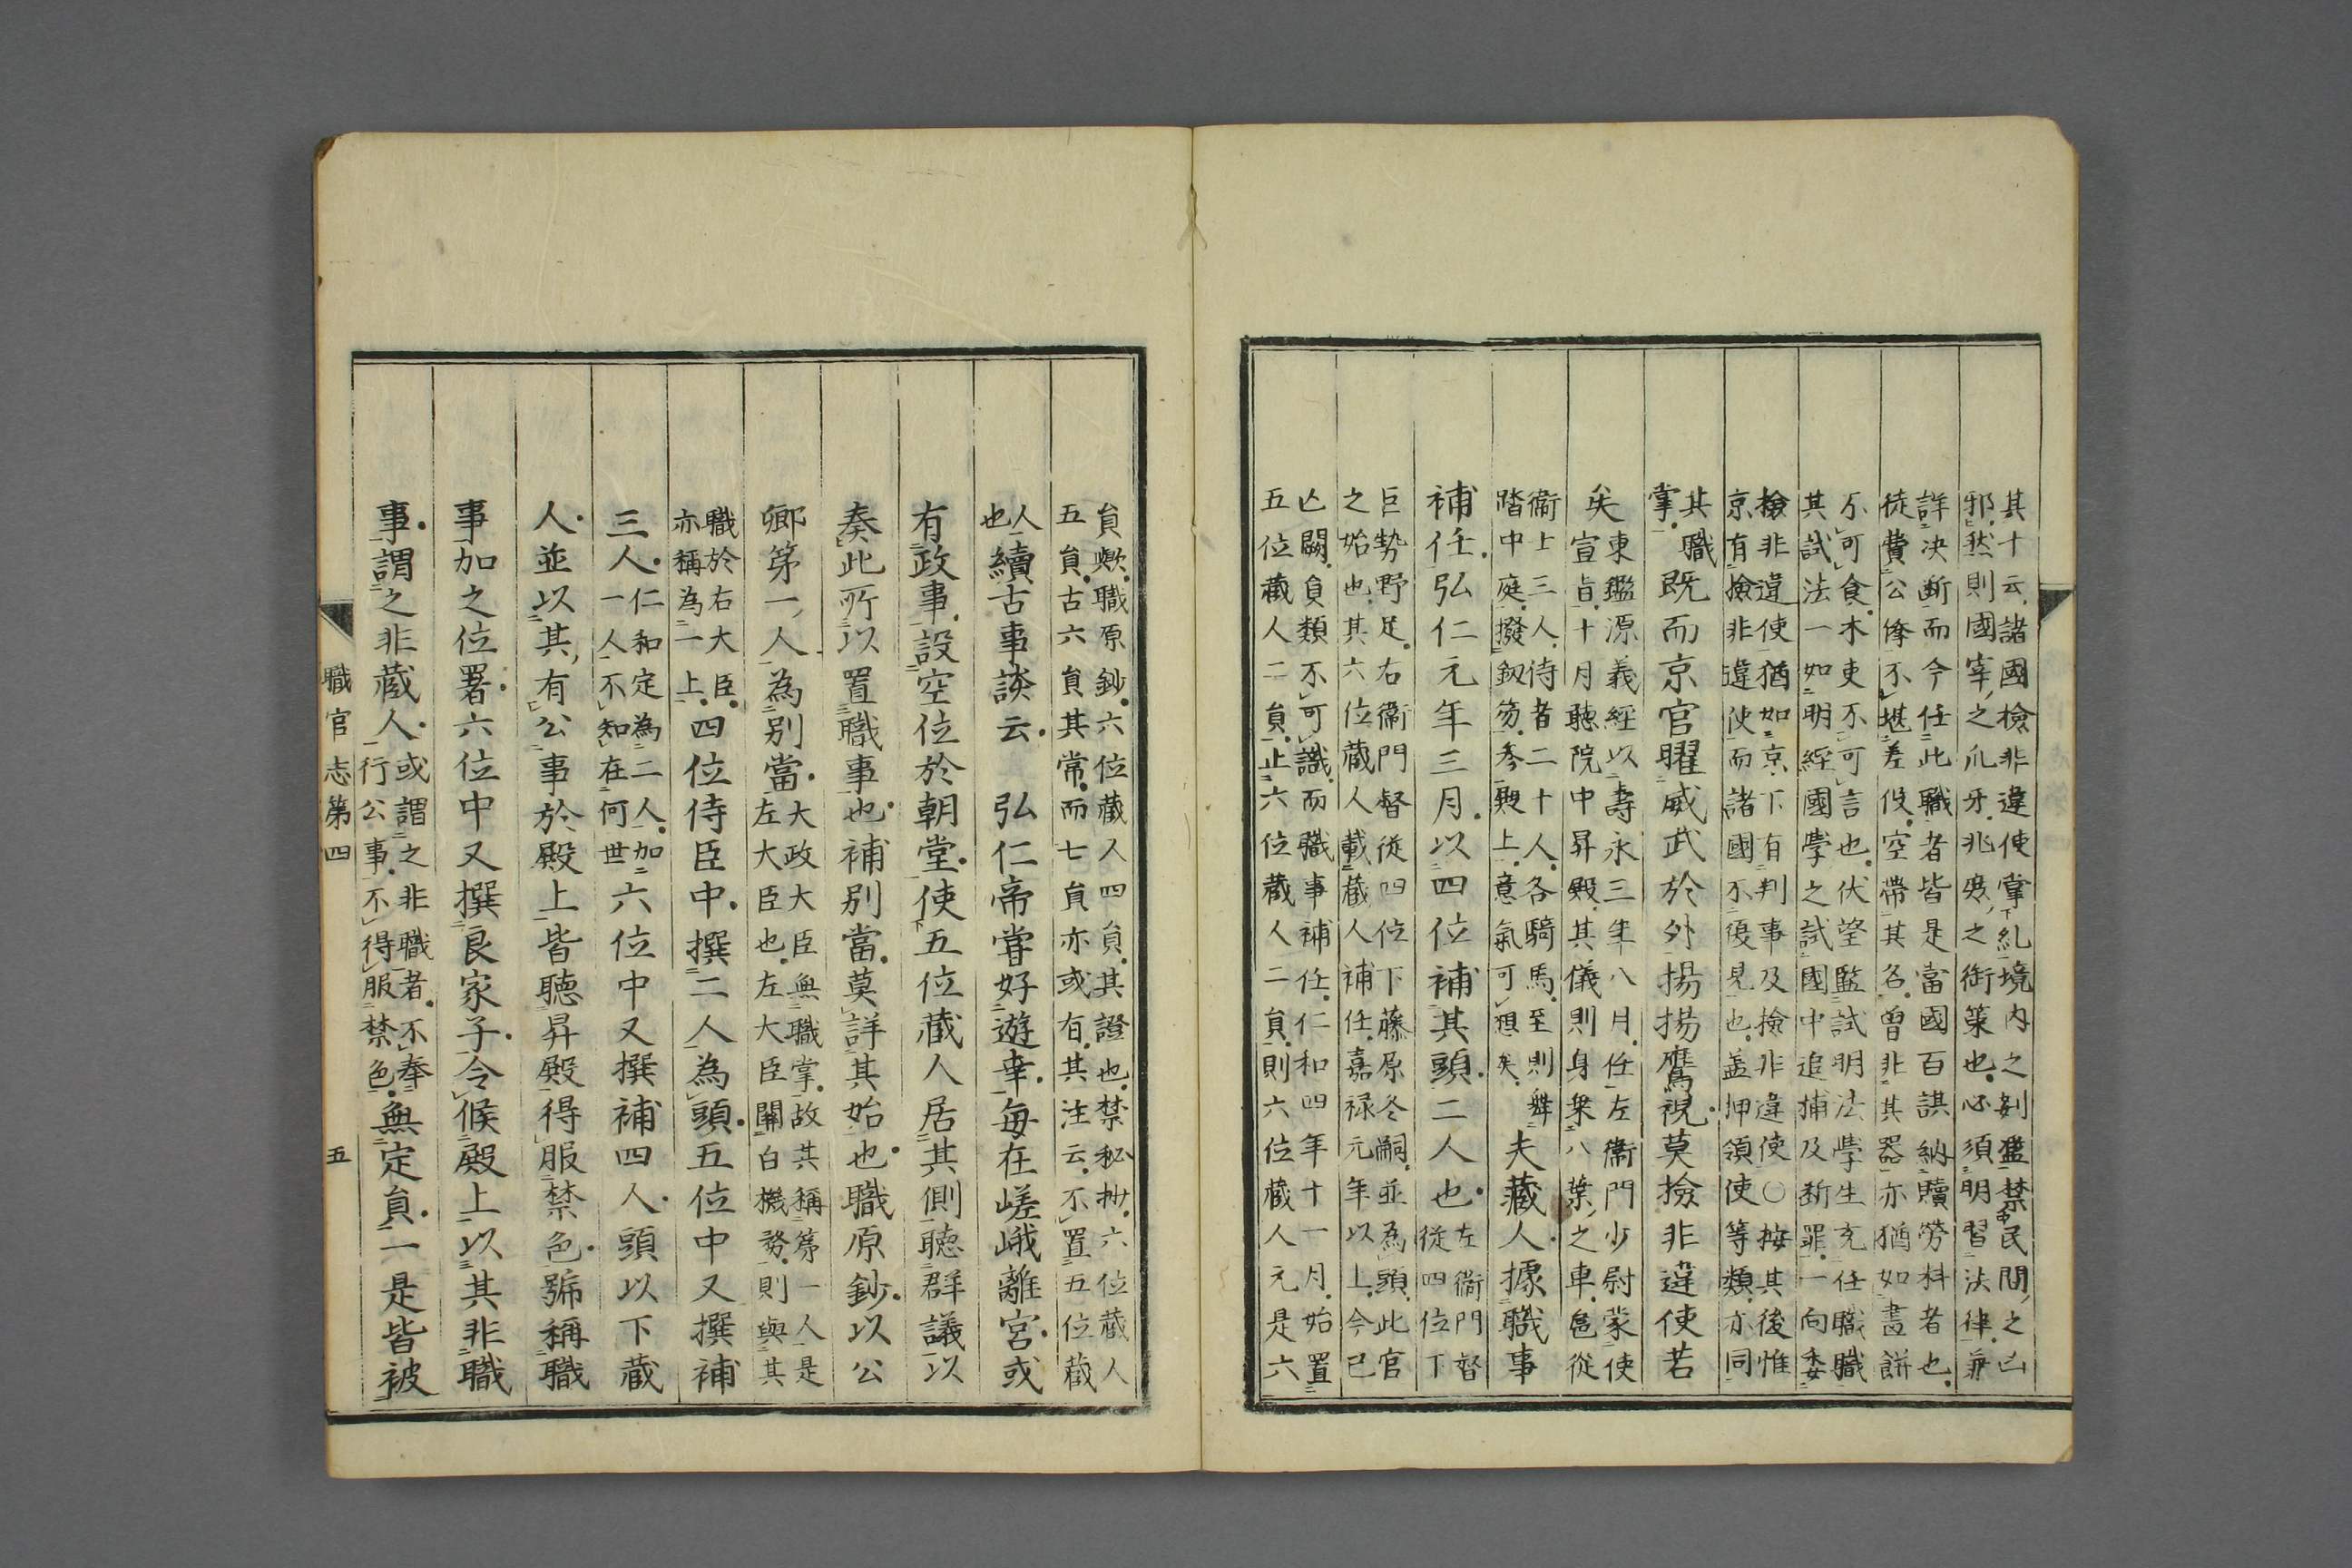 其十云諸國檢非違使掌糺境内之剝盜禁民間之凶
邪然則國宰之爪牙兆庶之銜策也必須明習法律兼
詳决断而今任此職者皆是當國百諆納贖勞料者也
徒費公俸不堪差役空帶其名曾非其器亦猶如畫餅
不可食木吏不可言也伏望監試明法學生充任職職
其試法一如明經國學之試國中追捕及断罪一向委
檢非違使猶如京下有判事及撿非違使〇按其後惟
京有撿非違使而諸國不復見也盖押領使等類亦同
其職
掌
既而京官曜威武於外揚揚鷹視莫撿非違使若
矣
東鑑源義經以壽永三年八月任左衞門少尉蒙使
宣旨十月聽院中昇殿其儀則身乗八葉之車扈從
衞士三人侍者二十人各騎馬至則舞
踏中庭撥釼笏参殿上意氣可想矣
夫藏人據職事
補任弘仁元年三月以四位補其頭二人也
左衞門督
從四位下
巨勢野足右衞門督從四位下藤原冬嗣並為頭此官
之始也其六位藏人載藏人補任嘉禄元年以上今已
亡闕員類不可識而職事補任仁和四年十一月始置
五位藏人二員止六位藏人二員則六位藏人元是六
員歟職原鈔六位藏人四員其證也禁秘抄六位藏人
五員古六員其常而七員亦或有其注云不置五位藏
人
也
續古事談云弘仁帝甞好遊幸每在嵯峨離宮或
有政事設空位於朝堂使五位藏人居其側聽群議以
奏此所以置職事也補别當莫詳其始也職原鈔以公
卿第一人為别當
大政大臣無職掌故其稱第一人是
左大臣也左大臣關白機務則與其
職於右大臣
亦稱為一上
四位侍臣中撰二人為頭五位中又撰補
三人
仁和定為二人加
一人不知在何世
六位中又撰補四人頭以下藏
人並以其有公事於殿上皆聽昇殿得服禁色號稱職
事加之位署六位中又撰良家子令候殿上以其非職
事謂之非藏人
或謂之非職者不奉
行公事不得服禁色
無定員一是皆被
職官志第四
五